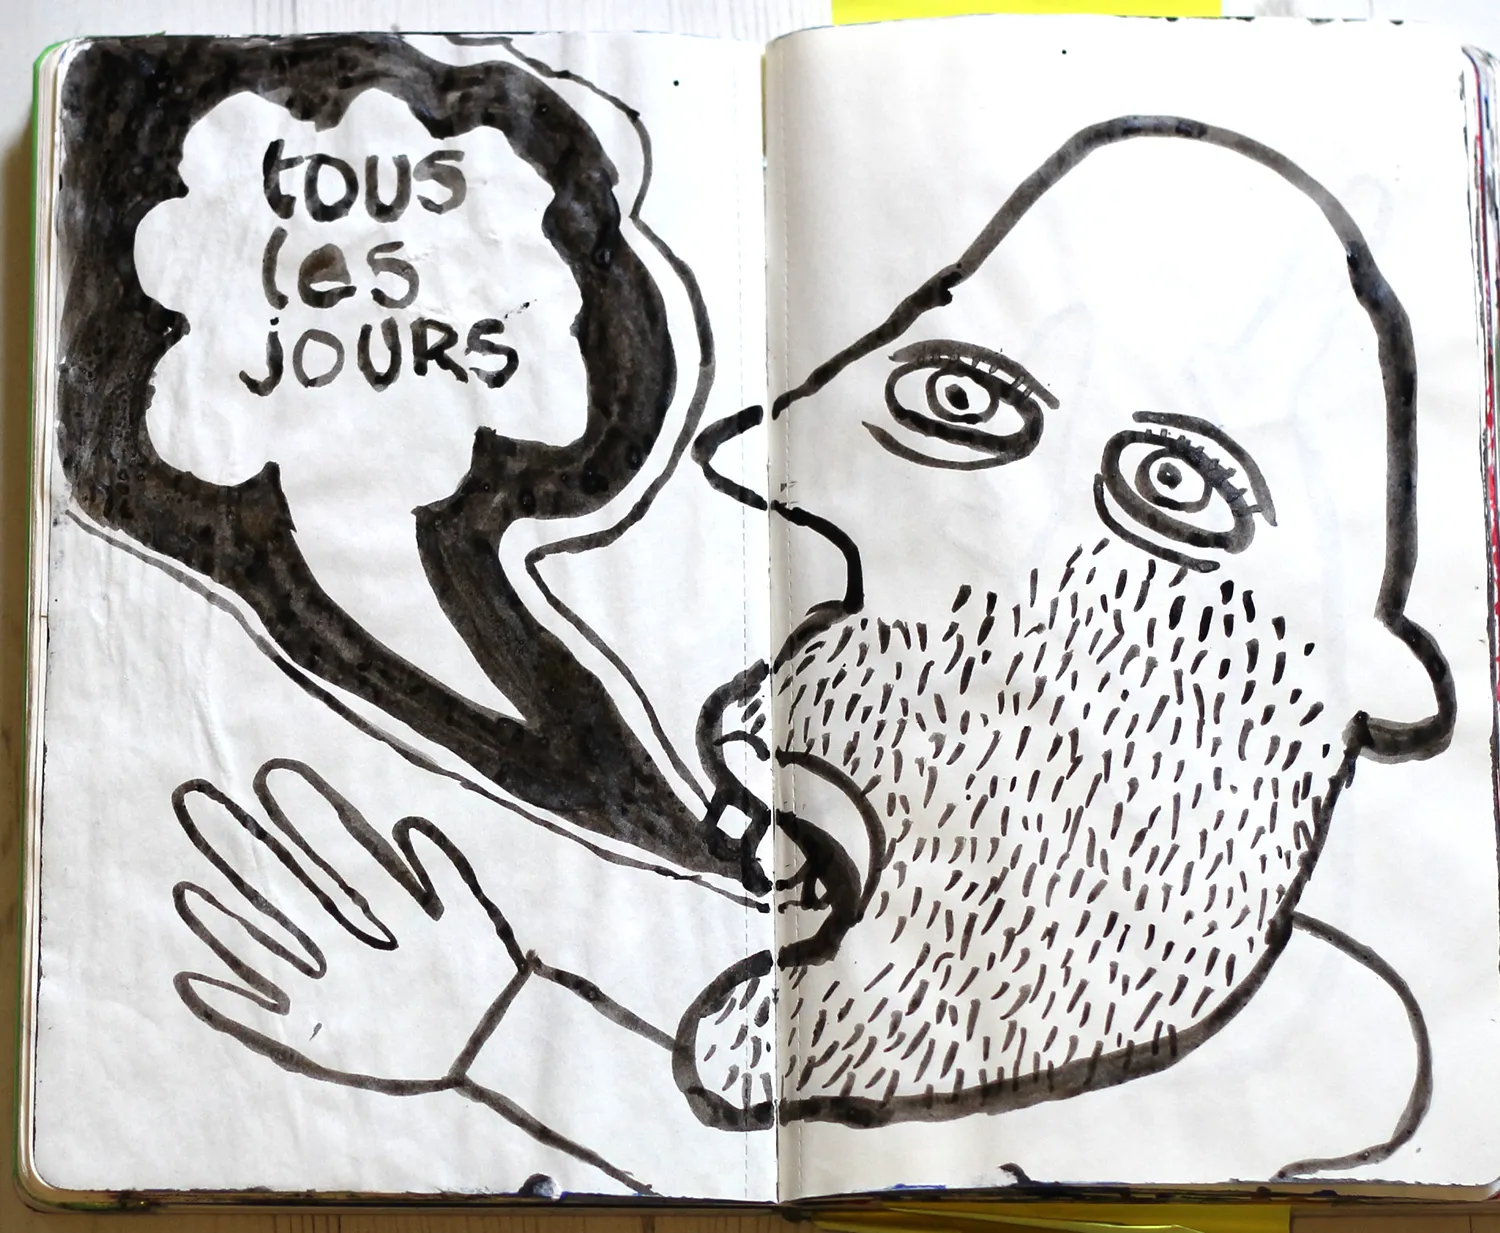 tous
les
jOURS